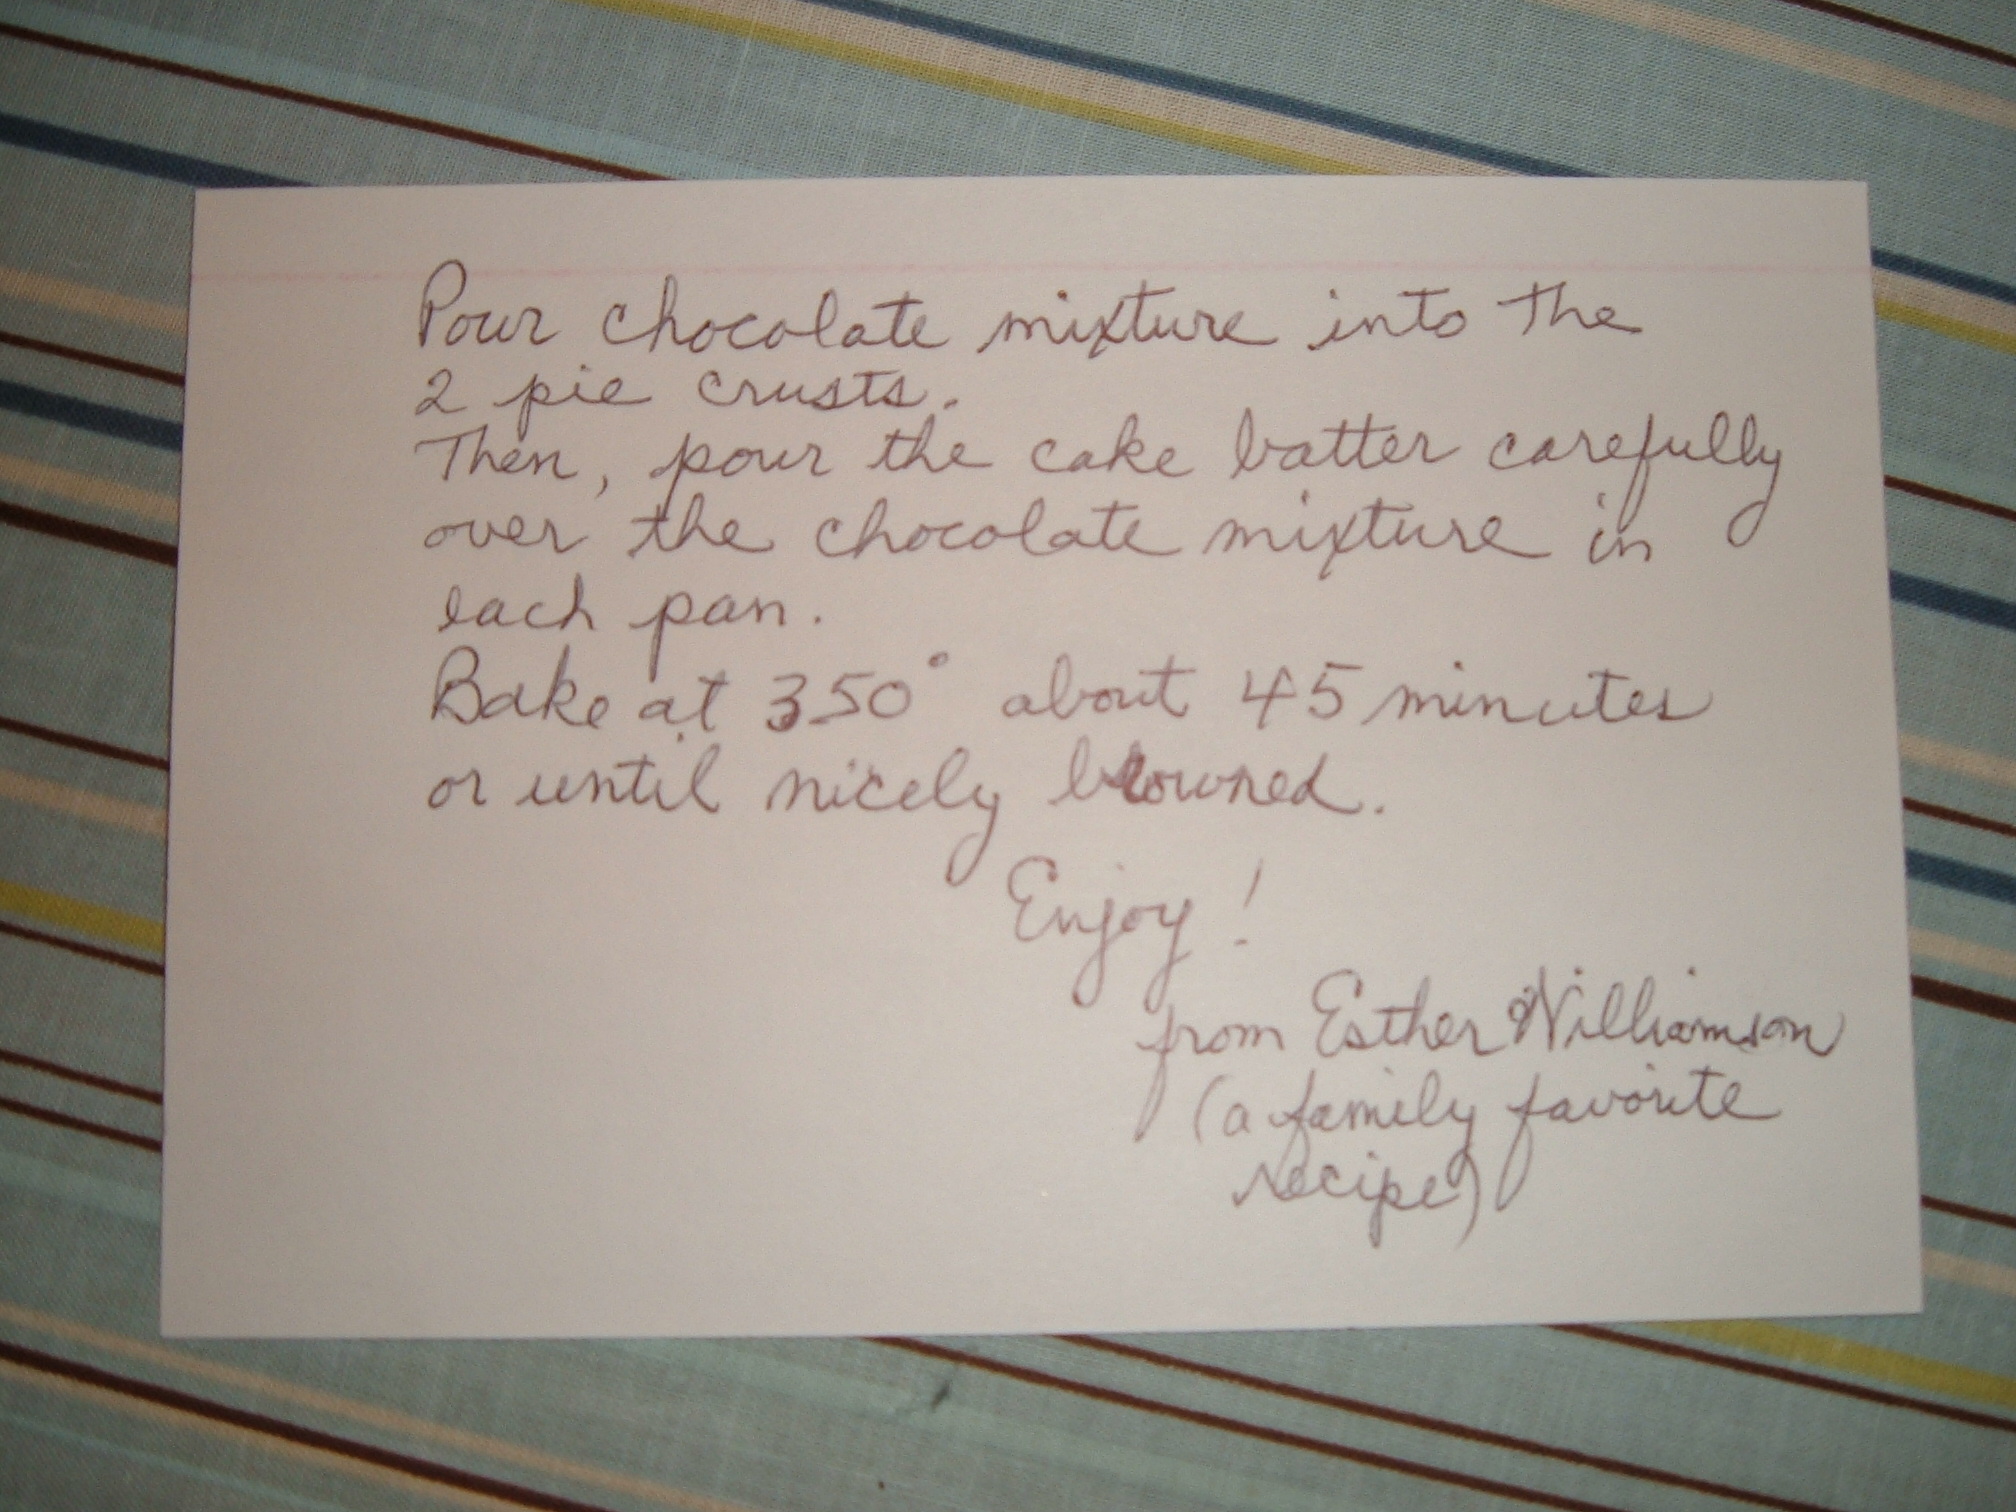 Pour chocolate mixture into the
2 pie crusts.
Then, pour the cake batter carefully
over the chocolate mixture in
each pan.
Bake at 350° about 45 minutes
or until nicely browned.
Enjoy!
from Esther Williamson
(a family favorite
recipe)